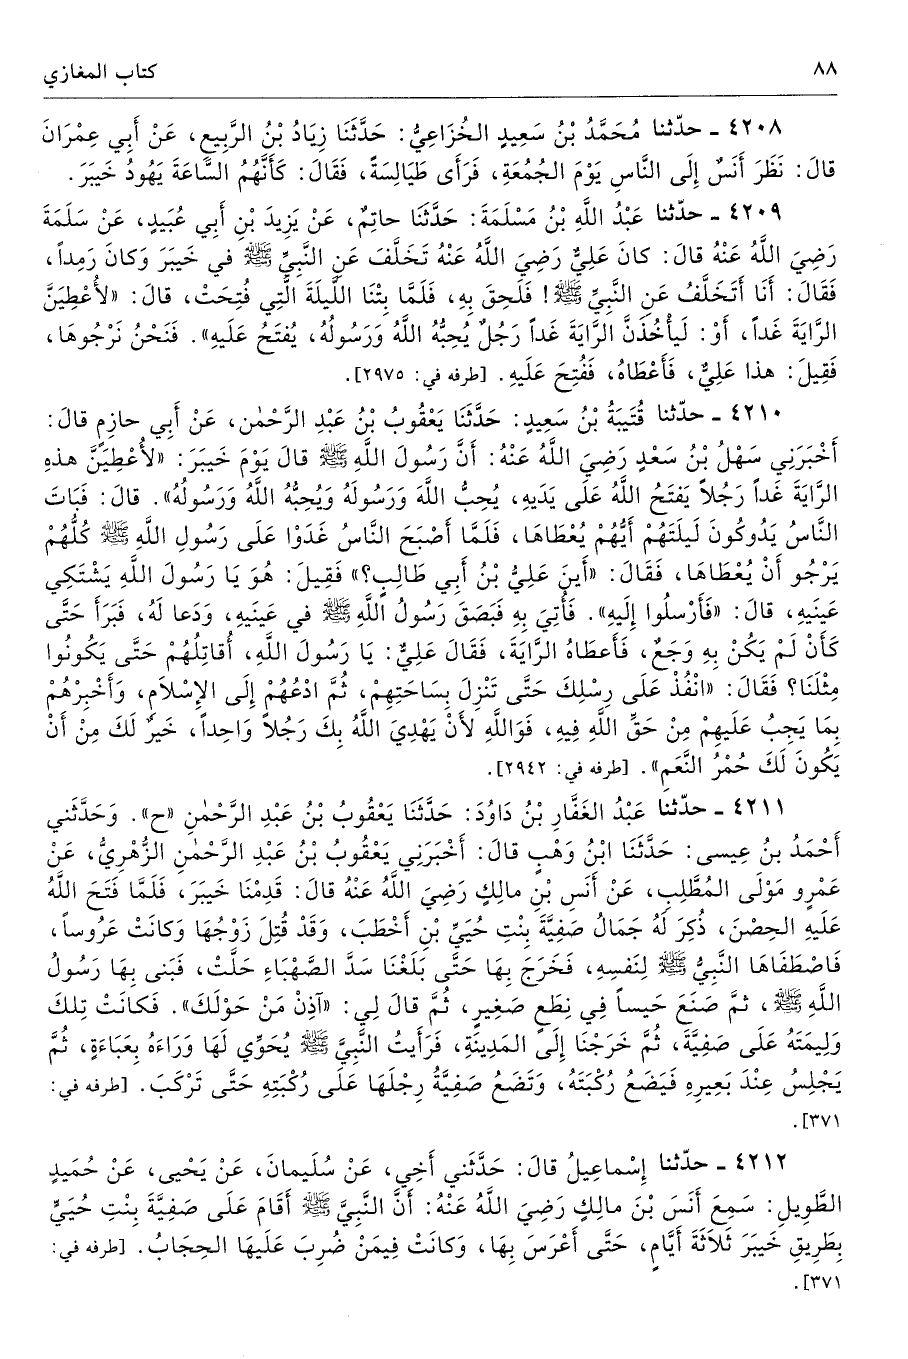 ٨٨ كتاب المغازي
٤٢٠٨ ـ حدّثنا مُحَمَّدُ بْنُ سَعِيدٍ الخُزَاعِيُّ: حَدَّثَنَا زِيَادُ بْنُ الرَّبِيعِ، عَنْ أَبِي عِمْرَانَ
قالَ: نَظَرَ أَنَسٌ إِلَى النَّاسِ يَوْمَ الجُمُعَةِ، فَرَأَى طَيَالِسَةً، فَقَالَ: كَأَنَّهُمُ السَّاعَةَ يَهُودُ خَيبَرَ.
٤٢٠٩ ـ حدّثنا عَبْدُ اللَّهِ بْنُ مَسْلَمَةَ: حَدَّثَنَا حاتِمٌ، عَنْ يَزِيدَ بْنِ أَبِي عُبَيدٍ، عَنْ سَلَمَةَ
رَضِيَ اللَّهُ عَنْهُ قالَ: كانَ عَلِيٌّ رَضِيَ اللَّهُ عَنْهُ تَخَلَّفَ عَنِ النَّبِيِّ ﷺ في خَيبَرَ وَكانَ رَمِداً،
فَقَالَ: أَنَا أَتَخَلَّفُ عَنِ النَّبِيِّ ﷺ! فَلَحِقَ بِهِ، فَلَمَّا بِتْنَا اللَّيلَةَ الَّتِي فُتِحَتْ، قالَ: «لأُعْطِيَنَّ
الرَّايَةَ غَداً، أَوْ: لَيَأْخُذَنَّ الرَّايَةَ غَداً رَجُلٌ يُحِبُّهُ اللَّهُ وَرَسُولُهُ، يُفتَحُ عَلَيهِ». فَنَحْنُ نَرْجُوهَا،
فَقِيلَ: هذا عَلِيٌّ، فَأَعْطَاهُ، فَفُتِحَ عَلَيهِ. [طرفه في: ٢٩٧٥].
٤٢١٠ ـ حدّثنا قُتَيبَةُ بْنُ سَعِيدٍ: حَدَّثَنَا يَعْقُوبُ بْنُ عَبْدِ الرَّحْمٰنِ، عَنْ أَبِي حازِمٍ قالَ:
أَخْبَرَنِي سَهْلُ بْنُ سَعْدٍ رَضِيَ اللَّهُ عَنْهُ: أَنَّ رَسُولَ اللَّهِ ﷺ قالَ يَوْمَ خَيبَرَ: «لأُعْطِيَنَّ هذهِ
الرَّايَةَ غَداً رَجُلاً يَفتَحُ اللَّهُ عَلَى يَدَيهِ، يُحِبُّ اللَّهَ وَرَسُولَهُ وَيُحِبُّهُ اللَّهُ وَرَسُولُهُ». قالَ: فَبَاتَ
النَّاسُ يَدُوكُونَ لَيلَتَهُمْ أَيُّهُمْ يُعْطَاهَا، فَلَمَّا أَصْبَحَ النَّاسُ غَدَوْا عَلَى رَسُولِ اللَّهِ ﷺ كُلُّهُمْ
يَرْجُو أَنْ يُعْطَاهَا، فَقَالَ: «أَينَ عَلِيُّ بْنُ أَبِي طَالِبٍ؟» فَقِيلَ: هُوَ يَا رَسُولَ اللَّهِ يَشْتَكِي
عَينَيهِ، قالَ: «فَأَرْسلُوا إِلَيهِ». فَأُتِيَ بِهِ فَبَصَقَ رَسُولُ اللَّهِ ﷺ في عَينَيهِ، وَدَعا لَهُ، فَبَرَأَ حَتَّى
كَأَنْ لَمْ يَكُنْ بِهِ وَجَعٌ، فَأَعطَاهُ الرَّايَةَ، فَقَالَ عَلِيٌّ: يا رَسُولَ اللَّهِ، أُقاتِلُهُمْ حَتَّى يَكُونُوا
مِثْلَنَا؟ فَقَالَ: «انْفُذْ عَلَى رِسْلِكَ حَتَّى تَنْزِلَ بِسَاحَتِهِمْ، ثُمَّ ادْعُهُمْ إِلَى الإِسْلَامِ، وَأَخْبِرْهُمْ
بِمَا يَجِبُ عَلَيهِمْ مِنْ حَقِّ اللَّهِ فِيهِ، فَوَاللَّهِ لأَنْ يَهْدِيَ اللَّهُ بِكَ رَجُلاً وَاحِداً، خَيرٌ لَكَ مِنْ أَنْ
يَكُونَ لَكَ حُمْرُ النَّعَمِ». [طرفه في: ٢٩٤٢].
٤٢١١ ـ حدّثنا عَبْدُ الغَفَّارِ بْنُ دَاوُدَ: حَدَّثَنَا يَعْقُوبُ بْنُ عَبْدِ الرَّحْمٰنِ «ح». وَحَدَّثَنِي
أَحْمَدُ بنُ عِيسى: حَدَّثَنَا ابْنُ وَهْبٍ قالَ: أَخْبَرَنِي يَعْقُوبُ بْنُ عَبْدِ الرَّحْمٰنِ الزُّهْرِيُّ، عَنْ
عَمْرٍو مَوْلَى المُطَّلِبِ، عَنْ أَنَسِ بْنِ مالِكٍ رَضِيَ اللَّهُ عَنْهُ قالَ: قَدِمْنَا خَيبَرَ، فَلَمَّا فَتَحَ اللَّهُ
عَلَيهِ الحِصْنَ، ذُكِرَ لَهُ جَمَالُ صَفِيَّةَ بِنْتِ حُيَيِّ بْنِ أَخْطَبَ، وَقَدْ قُتِلَ زَوْجُهَا وَكانَتْ عَرُوساً،
فَاصْطَفَاهَا النَّبِيُّ ﷺ لِنَفسِهِ، فَخَرَجَ بِهَا حَتَّى بَلَغْنَا سَدَّ الصَّهْبَاءِ حَلَّتْ، فَبَنى بِهَا رَسُولُ
اللَّهِ ﷺ، ثمَّ صَنَعَ حَيساً فِي نِطَعٍ صَغِيرٍ، ثُمَّ قالَ لِي: «آذِنْ مَنْ حَوْلَكَ». فَكانَتْ تِلكَ
وَلِيمَتَهُ عَلَى صَفِيَّةَ، ثُمَّ خَرَجْنَا إِلَى المَدِينَةِ، فَرَأَيتُ النَّبِيَّ ﷺ يُحَوِّي لَهَا وَرَاءَهُ بِعَبَاءَةٍ، ثُمَّ
يَجْلِسُ عِنْدَ بَعِيرِهِ فَيَضَعُ رُكْبَتَهُ، وَتَضَعُ صَفِيَّةُ رِجْلَهَا عَلَى رُكْبَتِهِ حَتَّى تَرْكَبَ. [طرفه في:
٣٧١].
٤٢١٢ ـ حدّثنا إِسْماعِيلُ قالَ: حَدَّثَنِي أَخِي، عَنْ سُلَيمانَ، عَنْ يَحْيى، عَنْ حُمَيدٍ
الطَّوِيلِ: سَمِعَ أَنَسَ بْنَ مالِكٍ رَضِيَ اللَّهُ عَنْهُ: أَنَّ النَّبِيَّ ﷺ أَقَامَ عَلَى صَفِيَّةَ بِنْتِ حُيَيٍّ
بِطَرِيقِ خَيبَرَ ثَلَاثَةَ أَيَّامٍ، حَتَّى أَعْرَسَ بِهَا، وَكانَتْ فِيمَنْ ضُرِبَ عَلَيهَا الحِجَابُ. [طرفه في:
٣٧١].